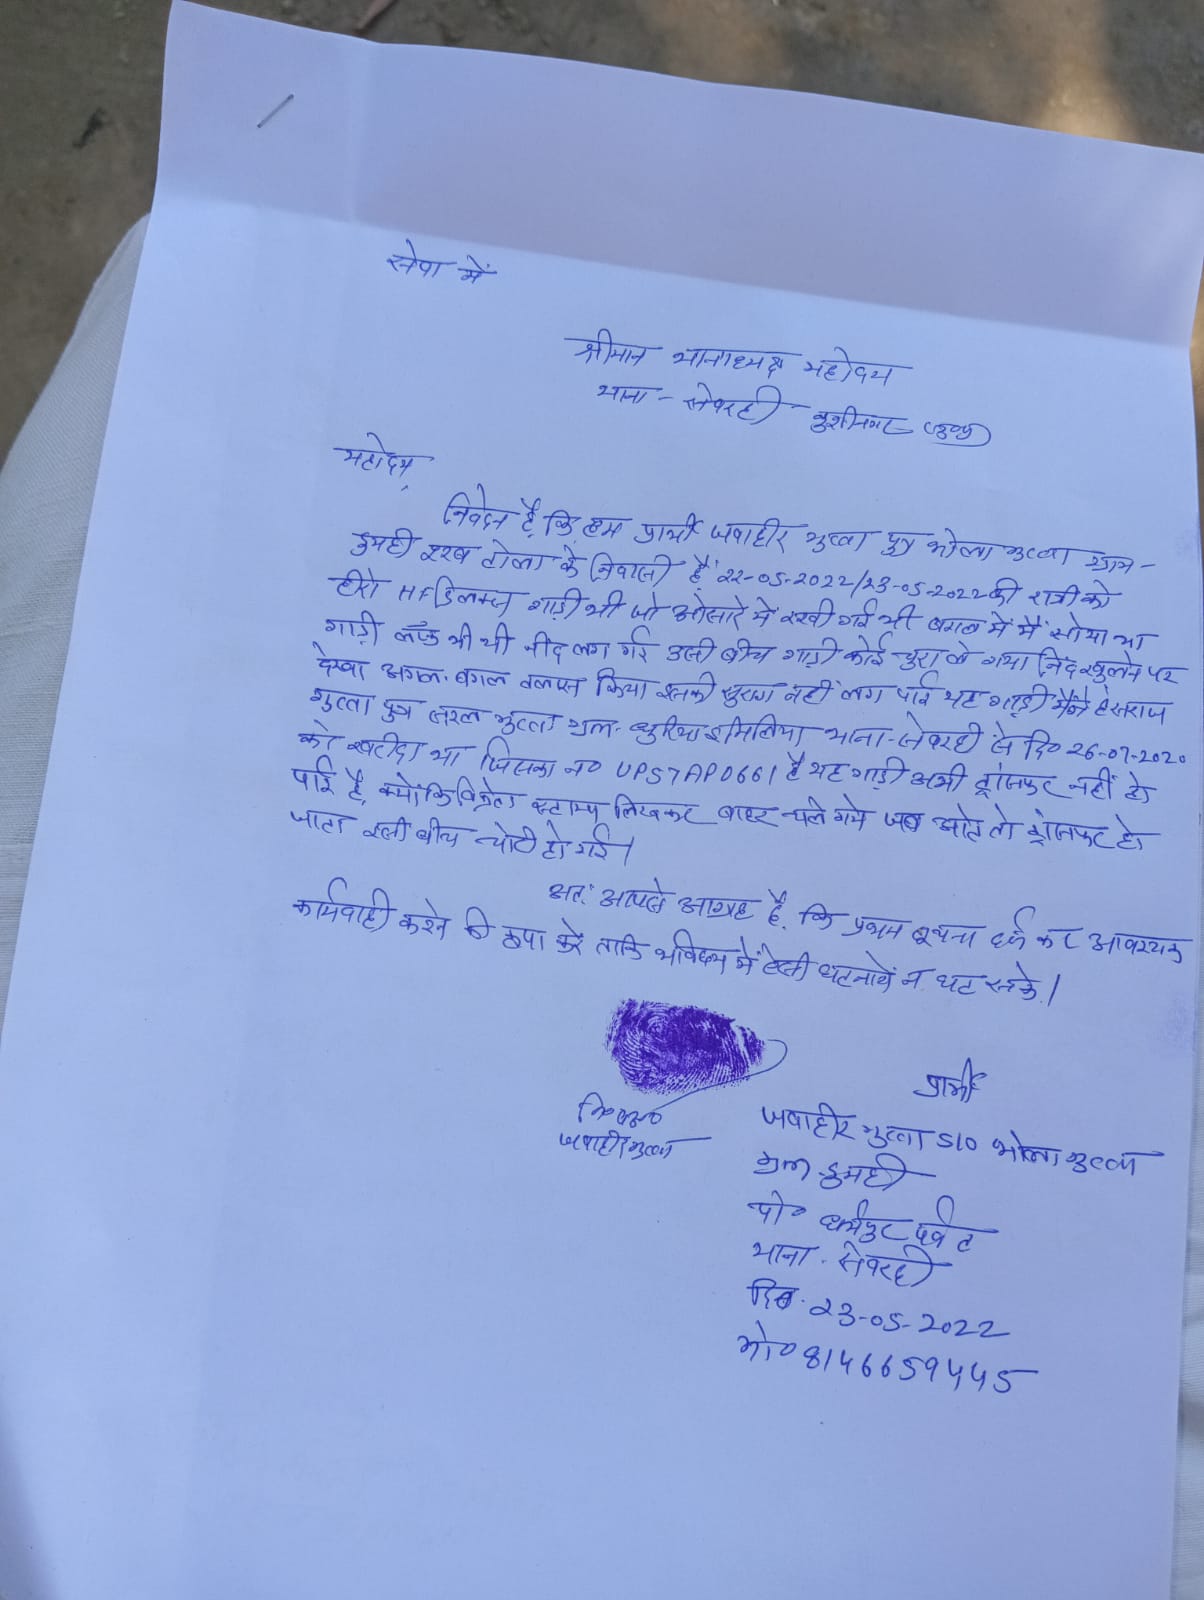 सेवा में
श्रीमान थानाध्यक्ष महोदय
थाना - सेवरही कुशीनगर (उ०प्र०)
महोदय,
निवेदन है, कि हम प्रार्थी जवाहीर गुप्ता पुत्र भोला गुप्ता ग्राम-
डुमही टोला के निवासी है 22-05-2022/23-05-2022 की रात्री को
हीरो HF डिलक्स गाड़ी थी जो ओसारे में रखी गई थी बगल में मैं सोया था
गाड़ी थी थी नींद लग गई उसी बीच गाड़ी कोई चुरा ले गया निद खुलने पर
देखा अगल-बगल तलास किया इसकी सुराग नहीं लग पाई यह गाड़ी मैंने हंसराज
गुप्ता पुत्र सरल गुप्ता ग्राम- इमिलिया थाना-सेवरही से दि० 26-07-2020
को खरीदा था जिसका न० UP57AP0661 है यह गाड़ी अभी ट्रांसफर नहीं हो
पाई है, क्योंकि विक्रेता स्टाम्प लिखकर बाहर चले गये जब आते तो ट्रांसफर हो
जाता इसी बीच चोरी हो गई।
अतः आपसे आग्रह है, कि प्रथम सूचना दर्ज कर आवश्यक
कार्यवाही करने की कृपा करे ताकि भविष्य में ऐसी घटनायें न घट सके।
प्रार्थी
जवाहीर गुप्ता S/O भोला गुप्ता
ग्राम-डुमही
पो० धर्मपुर पर्वत
थाना - सेवरही
दि० - 23-05-2022
मो० 8146659445
नि०अं०
जवाहीर गुप्ता